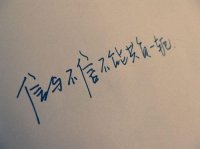 信与不信不能共负一轭